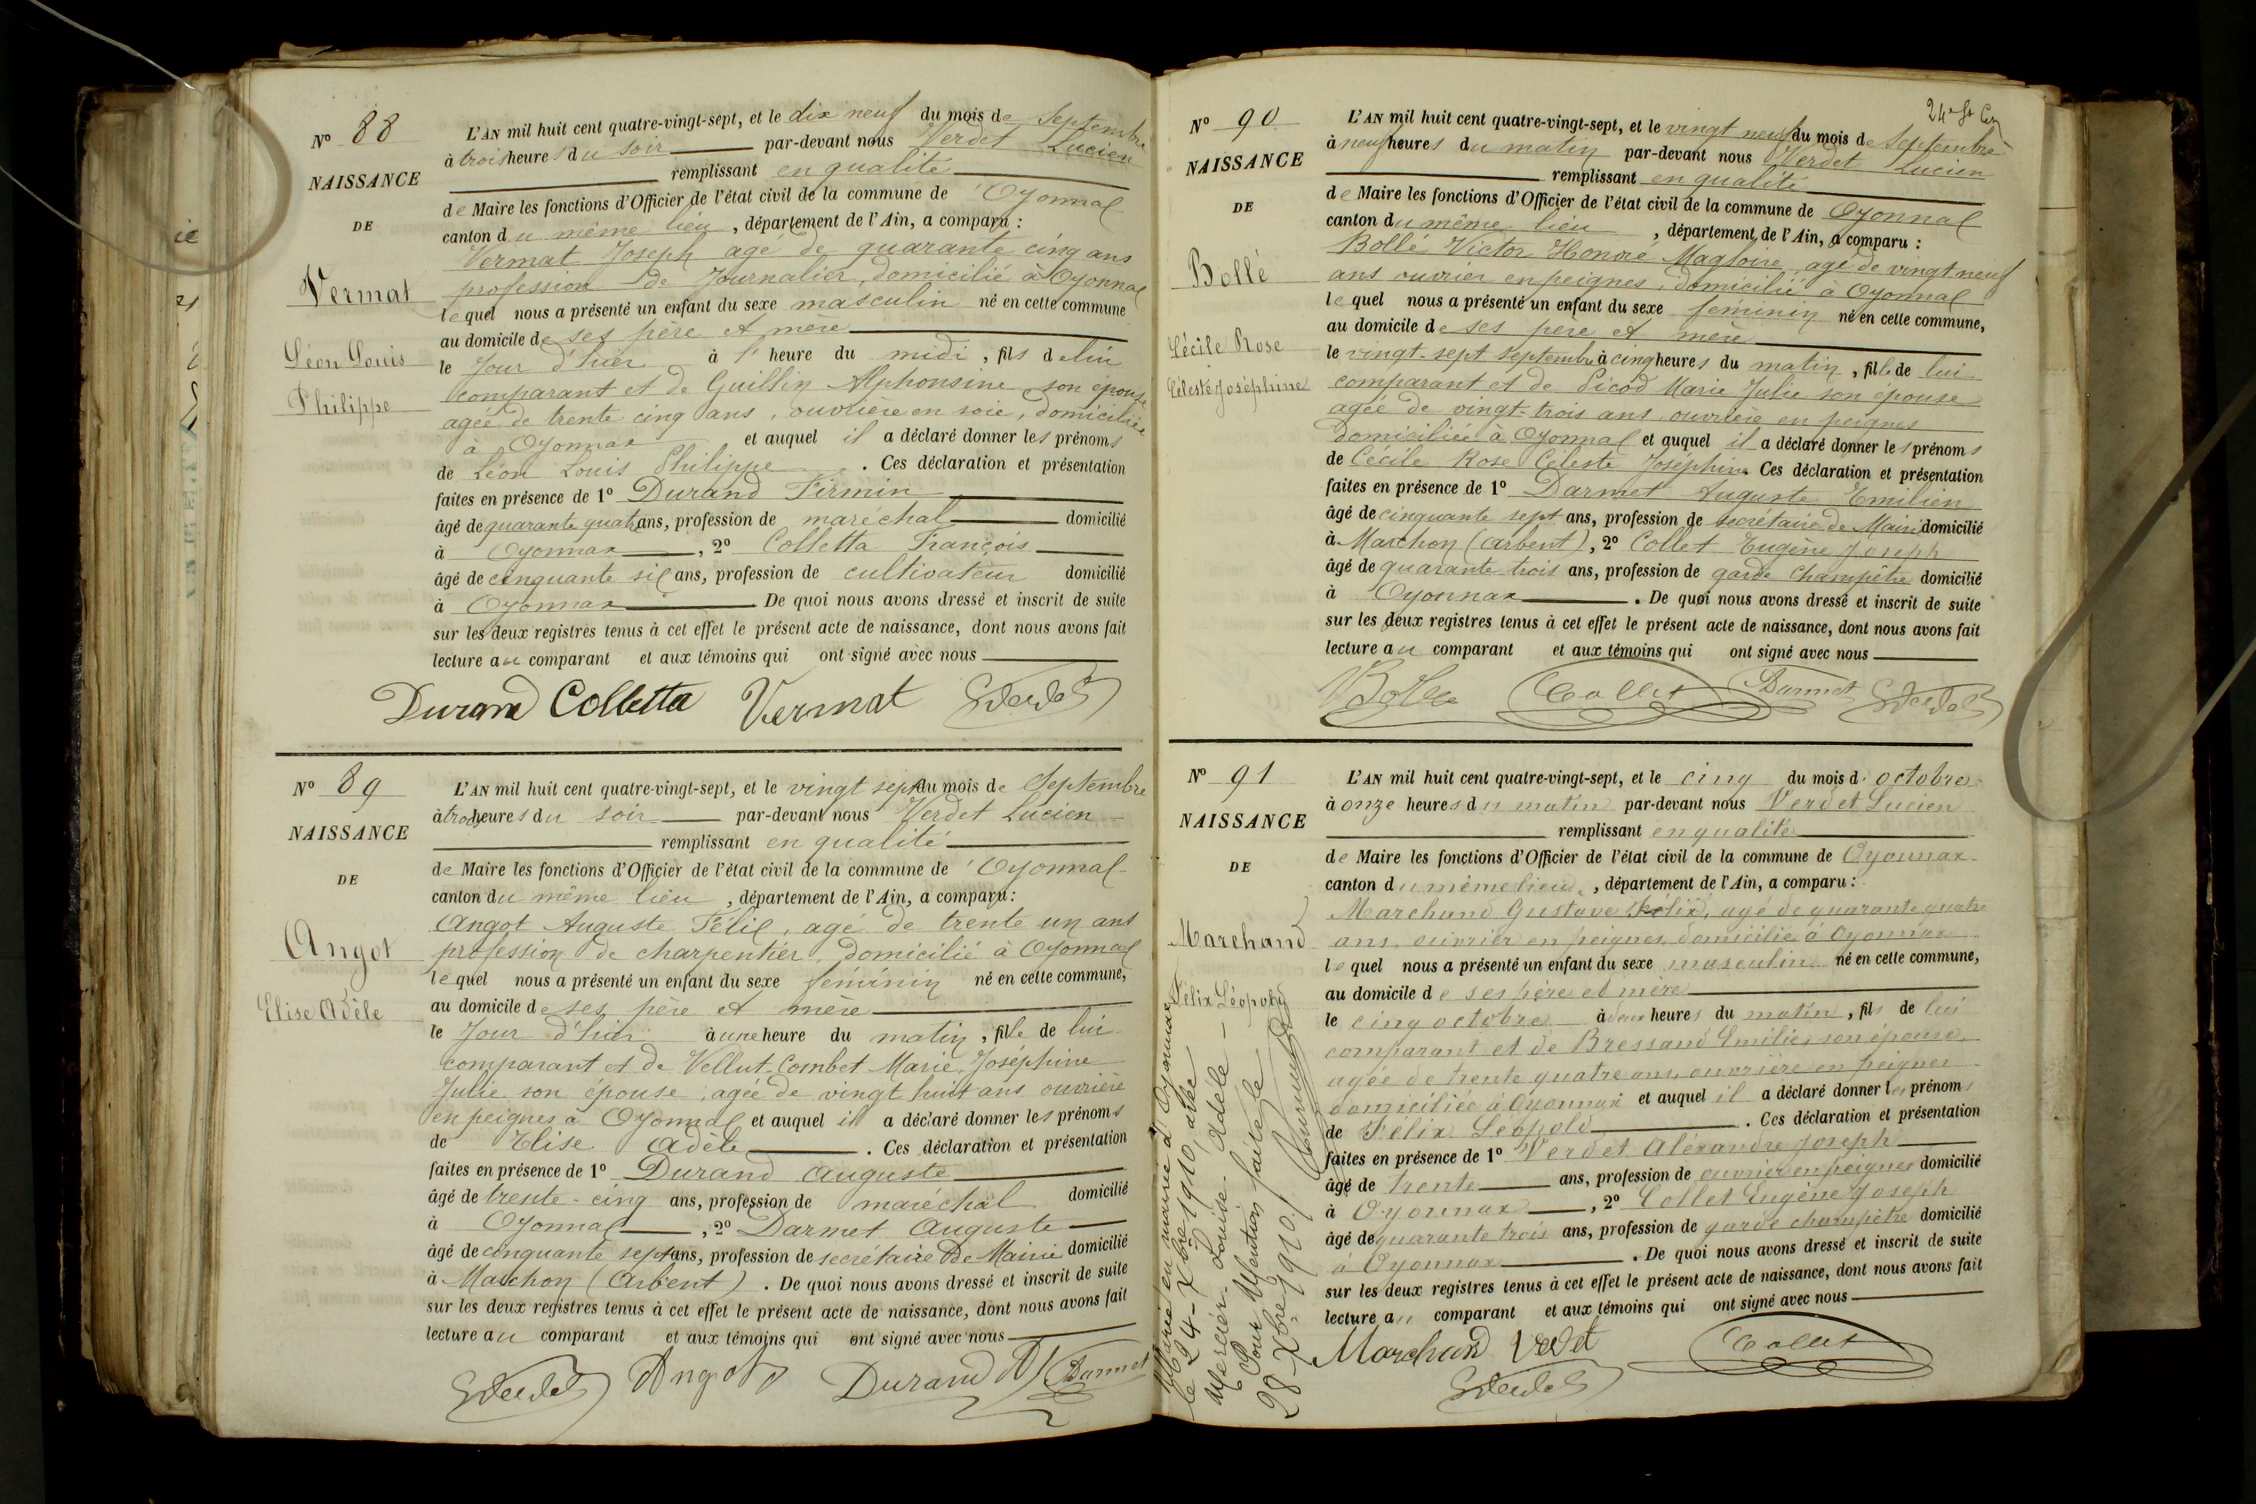 N° 88
NAISSANCE
DE
Vermat
Léon Louis
Philippe
L'AN mil huit cent quatre-vingt-sept, et le dix neuf du mois de Septembre
à trois heures du soir par-devant nous Verdet Lucien
remplissant en qualité
de Maire les fonctions d'Officier de l'état civil de la commune de Oyonnax
canton du même lieu, département de l'Ain, a comparu :
Vermat Joseph agé de quarante cinq ans
profession de Journalier, domicilié à Oyonnax
lequel nous a présenté un enfant du sexe masculin né en cette commune
au domicile de ses père et mère
le Jour d'hier à l' heure du midi, fils de lui
comparant et de Guillin Alphonsine son épouse
agée de trente cinq ans, ouvrière en soie, domiciliée
à Oyonnax et auquel il a déclaré donner les prénoms
de Léon Louis Philippe. Ces déclaration et présentation
faites en présence de 1° Durand Firmin
âgé de quarante quatre ans, profession de maréchal domicilié
à Oyonnax, 2° Colletta François
âgé de cinquante six ans, profession de cultivateur domicilié
à Oyonnax De quoi nous avons dressé et inscrit de suite
sur les deux registres tenus à cet effet le présent acte de naissance, dont nous avons fait
lecture au comparant et aux témoins qui ont signé avec nous
Durand Colletta Vermat Verdet
N° 89
NAISSANCE
DE
Angot
Elise Adèle
L'AN mil huit cent quatre-vingt-sept, et le vingt sept du mois de Septembre
à trois heures du soir par-devant nous Verdet Lucien
remplissant en qualité
de Maire les fonctions d'Officier de l'état civil de la commune de Oyonnax
canton du même lieu, département de l'Ain, a comparu :
Angot Auguste Félix, agé de trente un ans
profession de charpentier, domicilié à Oyonnax
lequel nous a présenté un enfant du sexe féminin né en cette commune,
au domicile de ses père et mère
le Jour d'hier à une heure du matin, fille de lui
comparant et de Vellut Combet Marie Joséphine
Julie son épouse, agée de vingt huit ans ouvrière
en peignes à Oyonnax et auquel il a déclaré donner les prénoms
de Elise Adèle. Ces déclaration et présentation
faites en présence de 1° Durand Auguste
âgé de trente-cinq ans, profession de maréchal domicilié
à Oyonnax, 2° Darmet Auguste
âgé de cinquante sept ans, profession de secrétaire de Mairie domicilié
à Marchon (Arbent). De quoi nous avons dressé et inscrit de suite
sur les deux registres tenus à cet effet le présent acte de naissance, dont nous avons fait
lecture au comparant et aux témoins qui ont signé avec nous
Verdet Angot Durand Darmet
N° 90
NAISSANCE
DE
Bollé
Cécile Rose
Céleste Joséphine
L'AN mil huit cent quatre-vingt-sept, et le vingt neuf du mois de Septembre
à neuf heures du matin par-devant nous Verdet Lucien
remplissant en qualité
de Maire les fonctions d'Officier de l'état civil de la commune de Oyonnax
canton du même lieu, département de l'Ain, a comparu :
Bollé Victor Honoré Magloire, agé de vingt neuf
ans ouvrier en peignes, domicilié à Oyonnax
lequel nous a présenté un enfant du sexe féminin né en cette commune,
au domicile de ses père et mère
le vingt-sept septembre à cinq heures du matin, fille de lui
comparant et de Picod Marie Julie son épouse
agée de vingt-trois ans ouvrière en peignes
domiciliée à Oyonnax et auquel il a déclaré donner les prénoms
de Cécile Rose Céleste Joséphine Ces déclaration et présentation
faites en présence de 1° Darmet Auguste Emilien
âgé de cinquante sept ans, profession de secrétaire de Mairie domicilié
à Marchon (Arbent), 2° Collet Eugène Joseph
âgé de quarante trois ans, profession de garde champêtre domicilié
à Oyonnax. De quoi nous avons dressé et inscrit de suite
sur les deux registres tenus à cet effet le présent acte de naissance, dont nous avons fait
lecture au comparant et aux témoins qui ont signé avec nous
VBolle Collet Darmet Verdet
N° 91
NAISSANCE
DE
Marchand
Félix Léopold
Marié en mairie d'Oyonnax
le 24 Xbre 1910, avec
Mercier Louise Adèle
Pour Mention faite le
28 Xbre 1910
L'AN mil huit cent quatre-vingt-sept, et le cinq du mois d'octobre
à onze heures du matin par-devant nous Verdet Lucien
remplissant en qualité
de Maire les fonctions d'Officier de l'état civil de la commune de Oyonnax
canton du même lieu, département de l'Ain, a comparu :
Marchand Gustave Félix, agé de quarante quatre
ans, ouvrier en peignes, domicilié à Oyonnax
lequel nous a présenté un enfant du sexe masculin né en cette commune,
au domicile de ses père et mère
le cinq octobre à deux heures du matin, fils de lui
comparant et de Bressand Emilie, son épouse,
agée de trente quatre ans, ouvrière en peignes
domiciliée à Oyonnax et auquel il a déclaré donner les prénoms
de Félix Léopold. Ces déclaration et présentation
faites en présence de 1° Verdet Alexandre Joseph
âgé de trente ans, profession de ouvrier en peignes domicilié
à Oyonnax, 2° Collet Eugène Joseph
âgé de quarante trois ans, profession de garde champêtre domicilié
à Oyonnax. De quoi nous avons dressé et inscrit de suite
sur les deux registres tenus à cet effet le présent acte de naissance, dont nous avons fait
lecture au comparant et aux témoins qui ont signé avec nous
Marchand Verdet Collet
Verdet